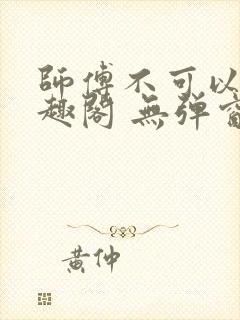 師傅不可以
趣閣 無彈窗
黃仲